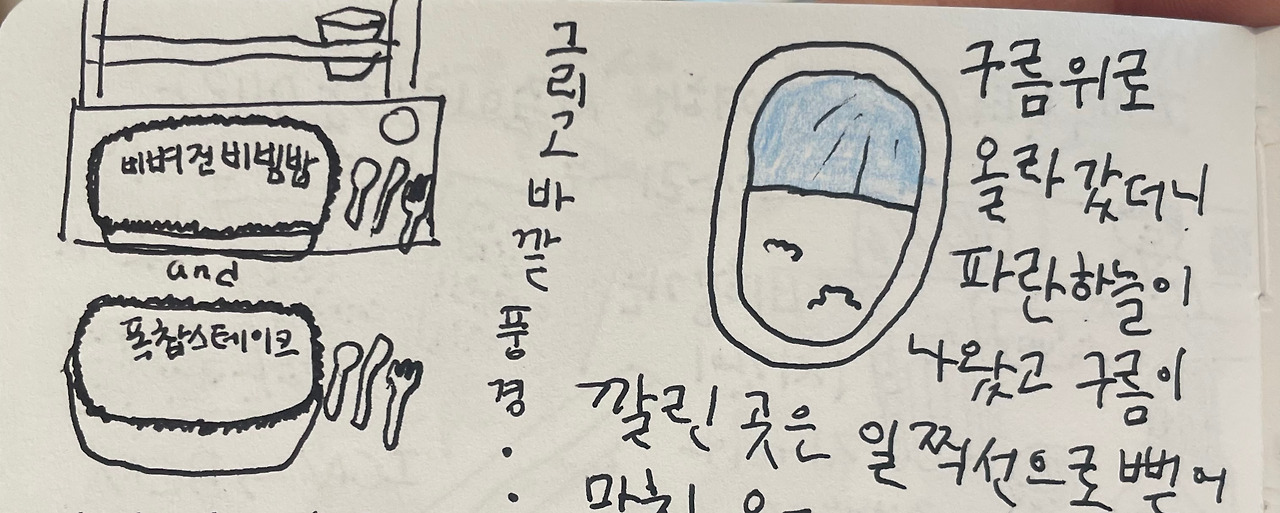 비벼전 비빔밥
and
폭찹스테이크
그리고 바깥 풍경..
구름 위로
올라 갔더니
파란 하늘이
나왔고 구름이
깔린 곳은 일찍선으로 뻗어
마치